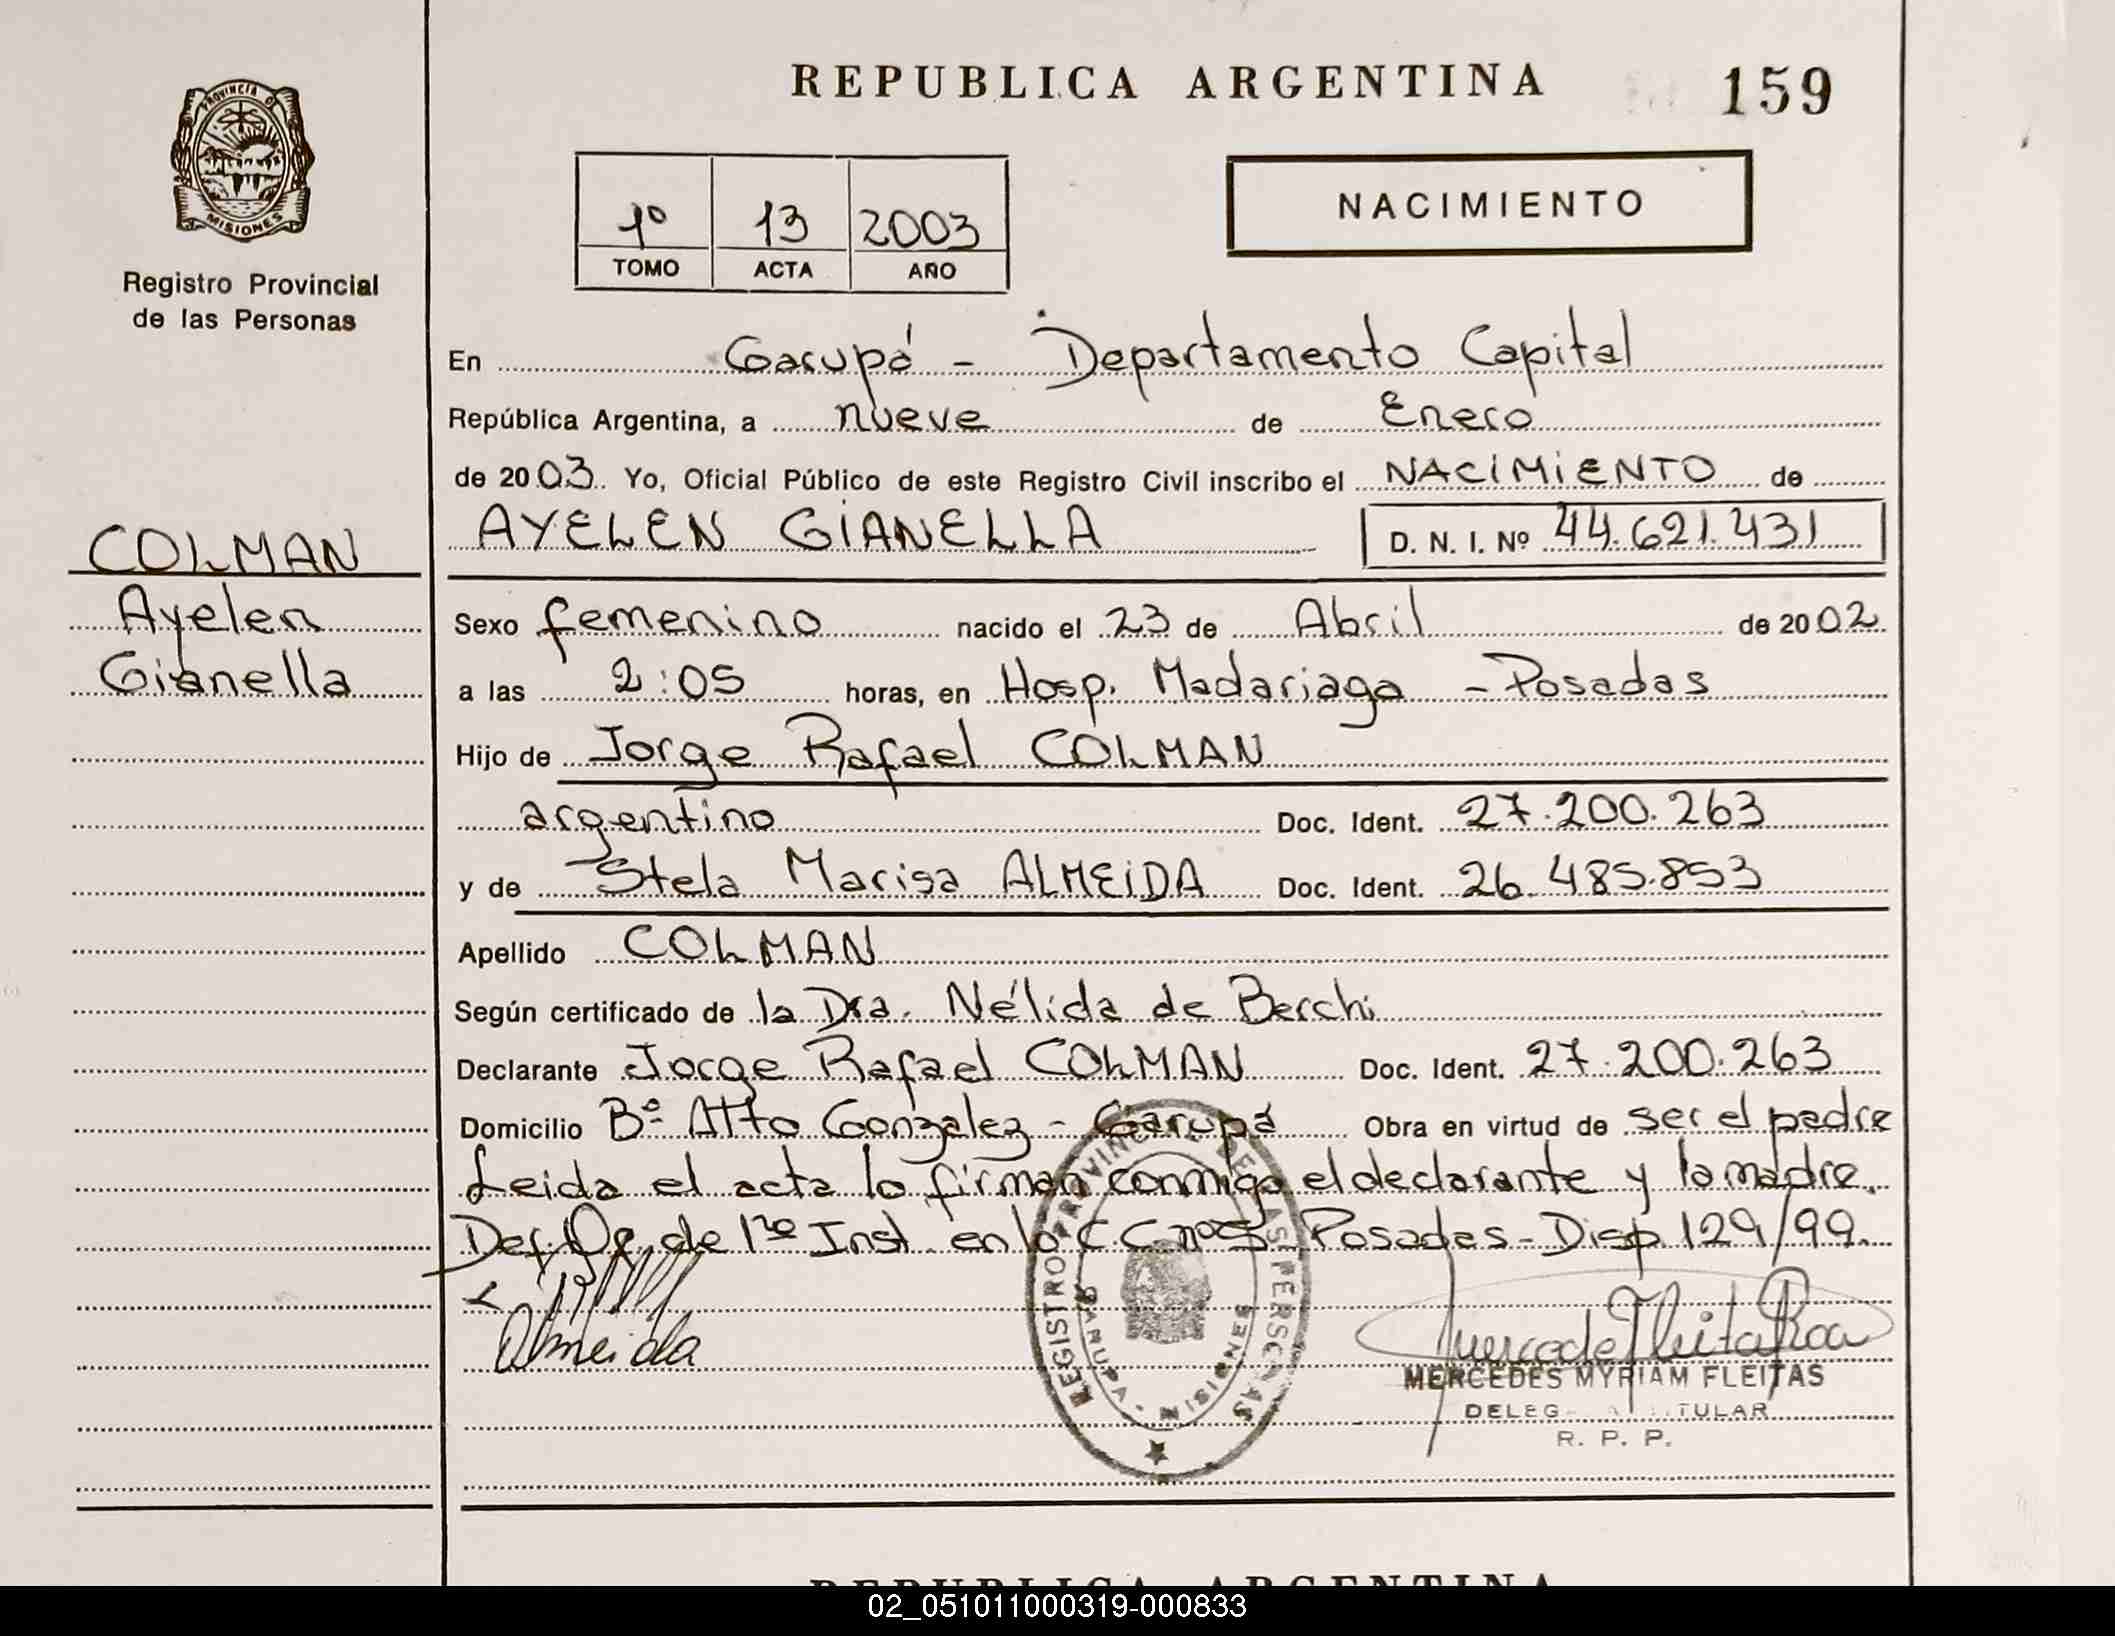 REPUBLICA ARGENTINA 159
PROVINCIA D
MISIONES
Registro Provincial
de las Personas
1º 13 2003
TOMO ACTA AÑO
NACIMIENTO
En Garupá - Departamento Capital
República Argentina, a nueve de Enero
de 2003. Yo, Oficial Público de este Registro Civil inscribo el NACIMIENTO de
COLMAN
Ayelen
Gianella
AYELEN GIANELLA D. N. I. Nº 44.621.431
Sexo femenino nacido el 23 de Abril de 2002
a las 2:05 horas, en Hosp. Madariaga - Posadas
Hijo de Jorge Rafael COLMAN
argentino Doc. Ident. 27.200.263
y de Stela Marisa ALMEIDA Doc. Ident. 26.485.853
Apellido COLMAN
Según certificado de la Dra. Nélida de Berchi
Declarante Jorge Rafael COLMAN Doc. Ident. 27.200.263
Domicilio Bº Alto Gonzalez - Garupá Obra en virtud de ser el padre
Leida el acta lo firman conmigo el declarante y la madre.
Def. Of. de 1ra Inst. en lo C.C. nº5 Posadas - Disp. 129/99.
Almeida
REGISTRO PROVINCIAL DE LAS PERSONAS
GARUPA - MISIONES
MERCEDES MYRIAM FLEITAS
R. P. P.
REPUBLICA ARGENTINA
02_051011000319-000833